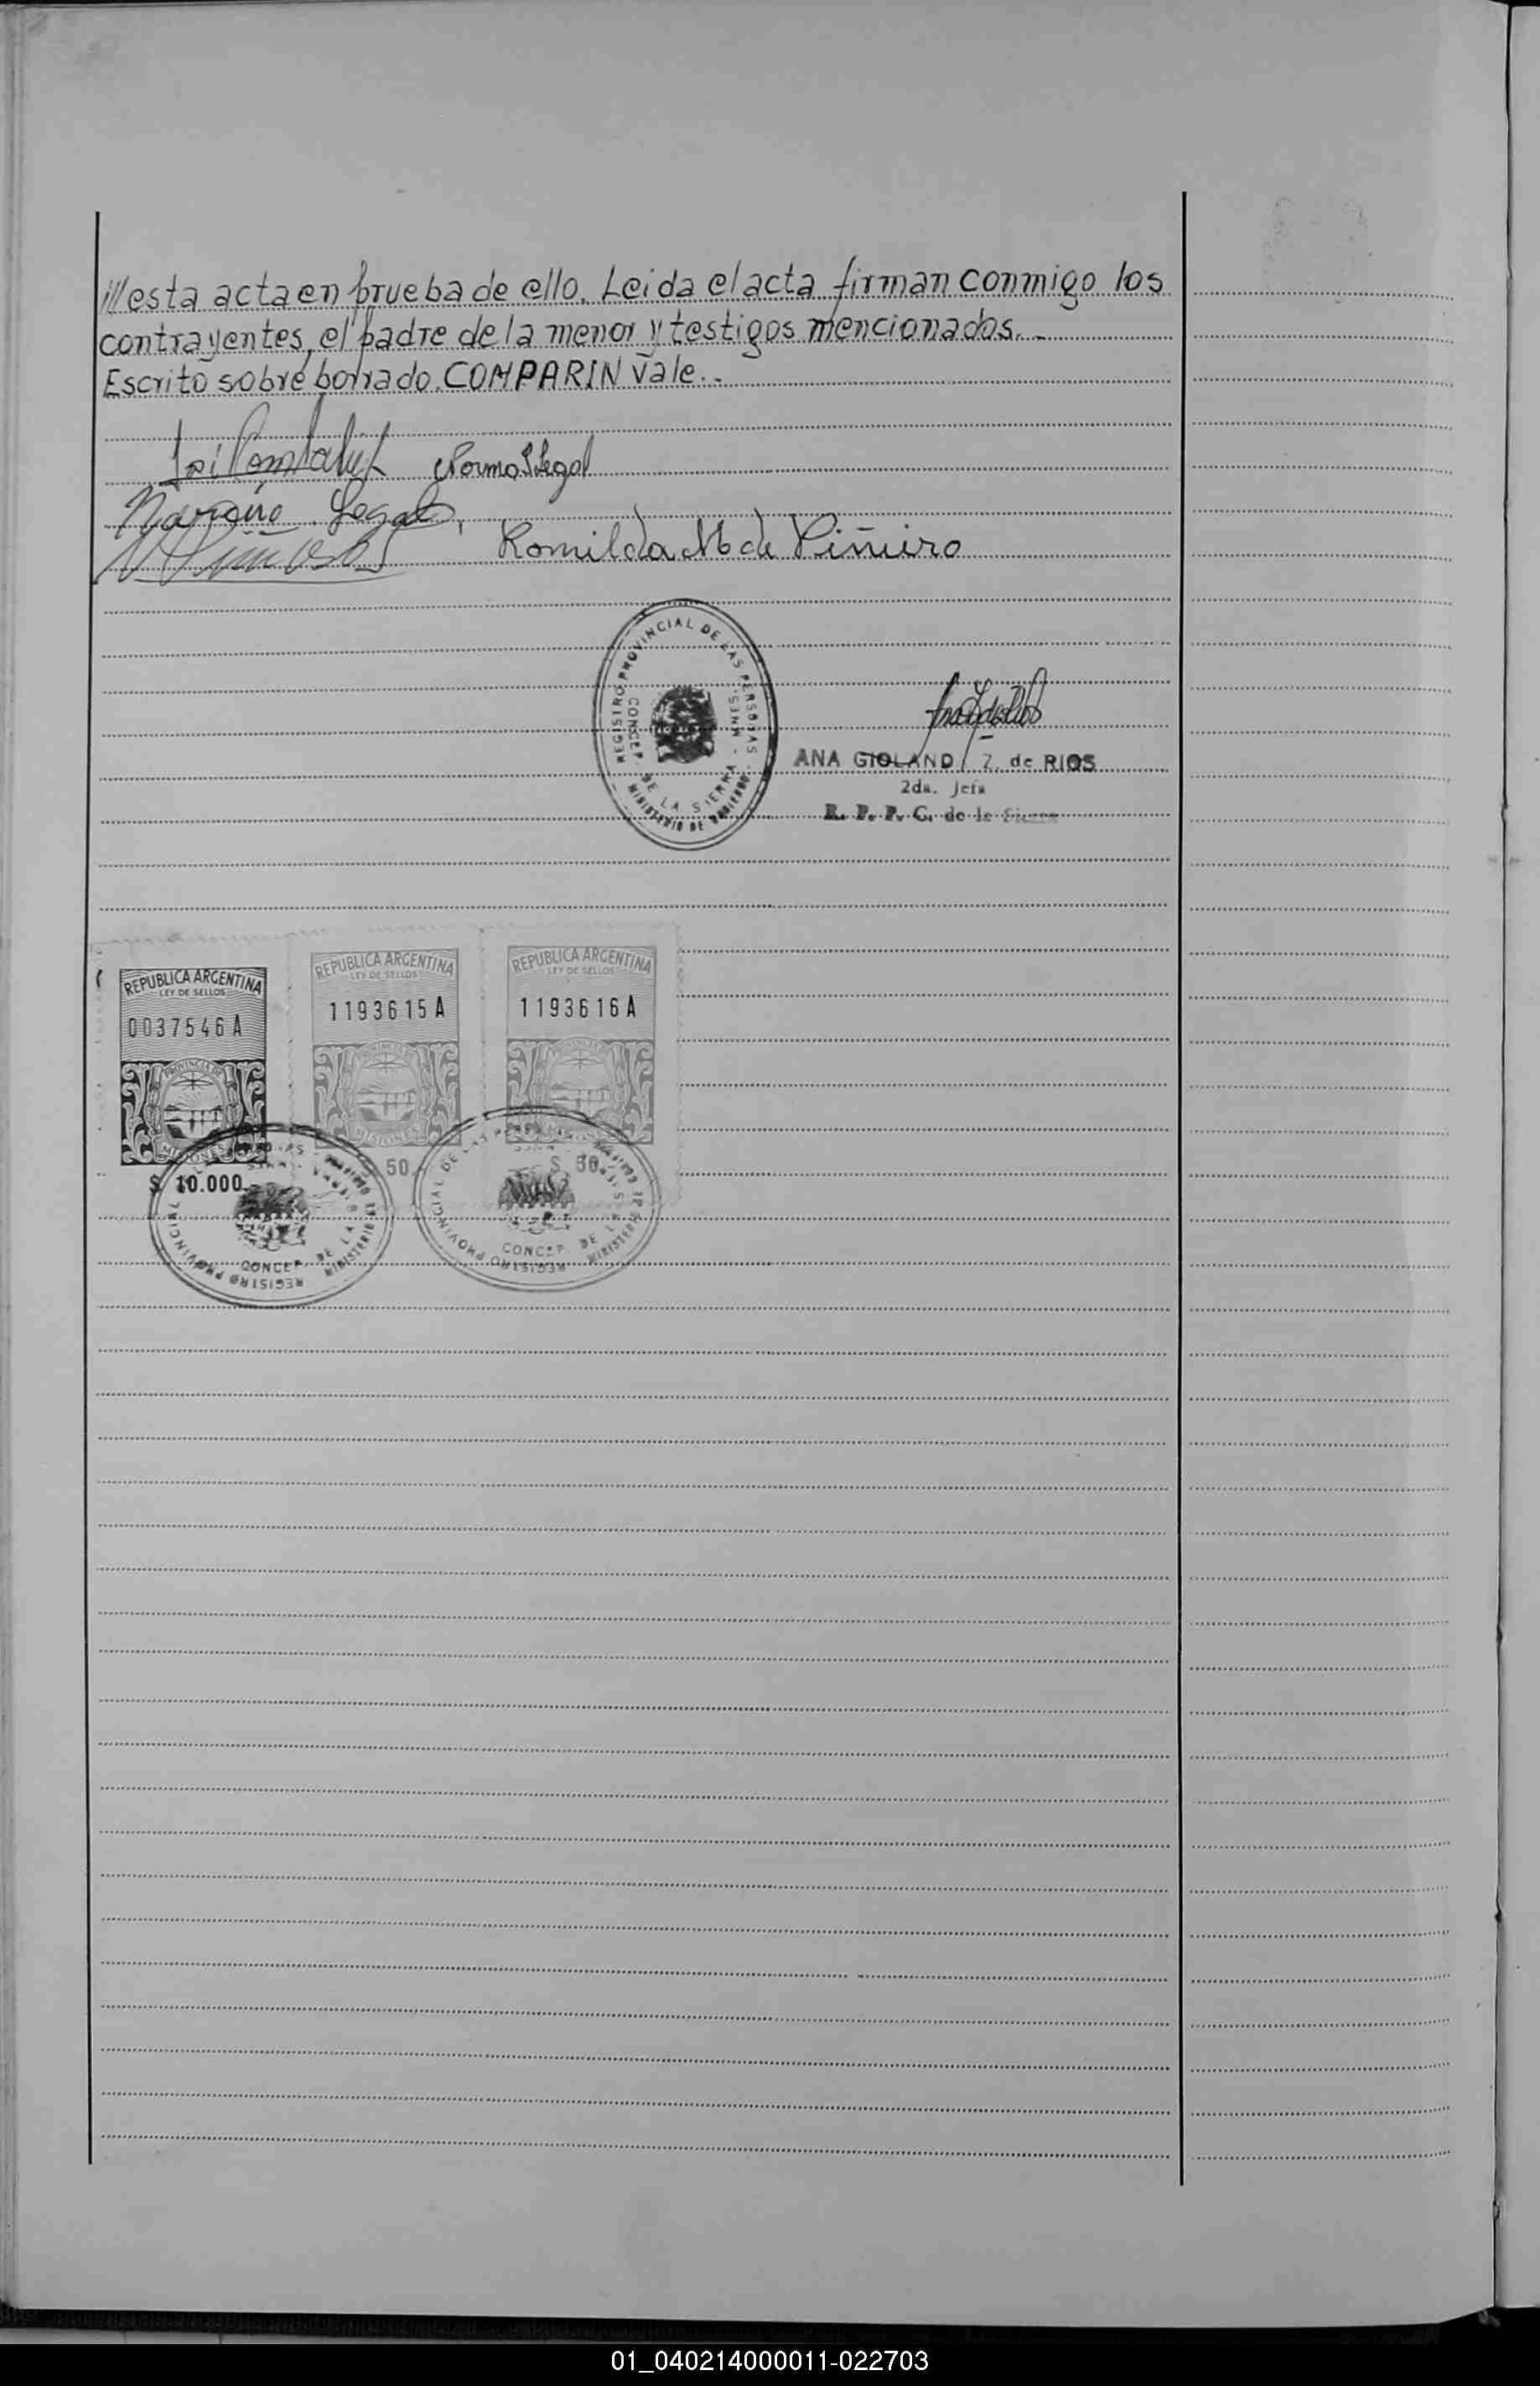 ///esta acta en prueba de ello. Leida el acta firman conmigo los
contrayentes, el padre de la menor y testigos mencionados.-
Escrito sobre borrado. COMPARIN Vale.-
Norma Segal
Romilda M de Piñeiro
REGISTRO PROVINCIAL DE LAS PERSONAS - MINISTERIO DE GOBIERNO
CONCEP. DE LA SIERRA - MNES.
ANA GIOLANDI Z. de RIOS
2da. Jefa
R. P. P. C. de la Sierra
REPUBLICA ARGENTINA
LEY DE SELLOS
0037546 A
PROVINCIA DE
MISIONES
$ 10.000.-
REPUBLICA ARGENTINA
LEY DE SELLOS
1193615 A
PROVINCIA DE
MISIONES
50.-
REPUBLICA ARGENTINA
LEY DE SELLOS
1193616 A
$ 50.
REGISTRO PROVINCIAL
CONCEP. DE LA
MINISTERIO DE
REGISTRO PROVINCIAL DE LAS
CONCEP. DE LA S
MINISTERIO DE
01_040214000011-022703